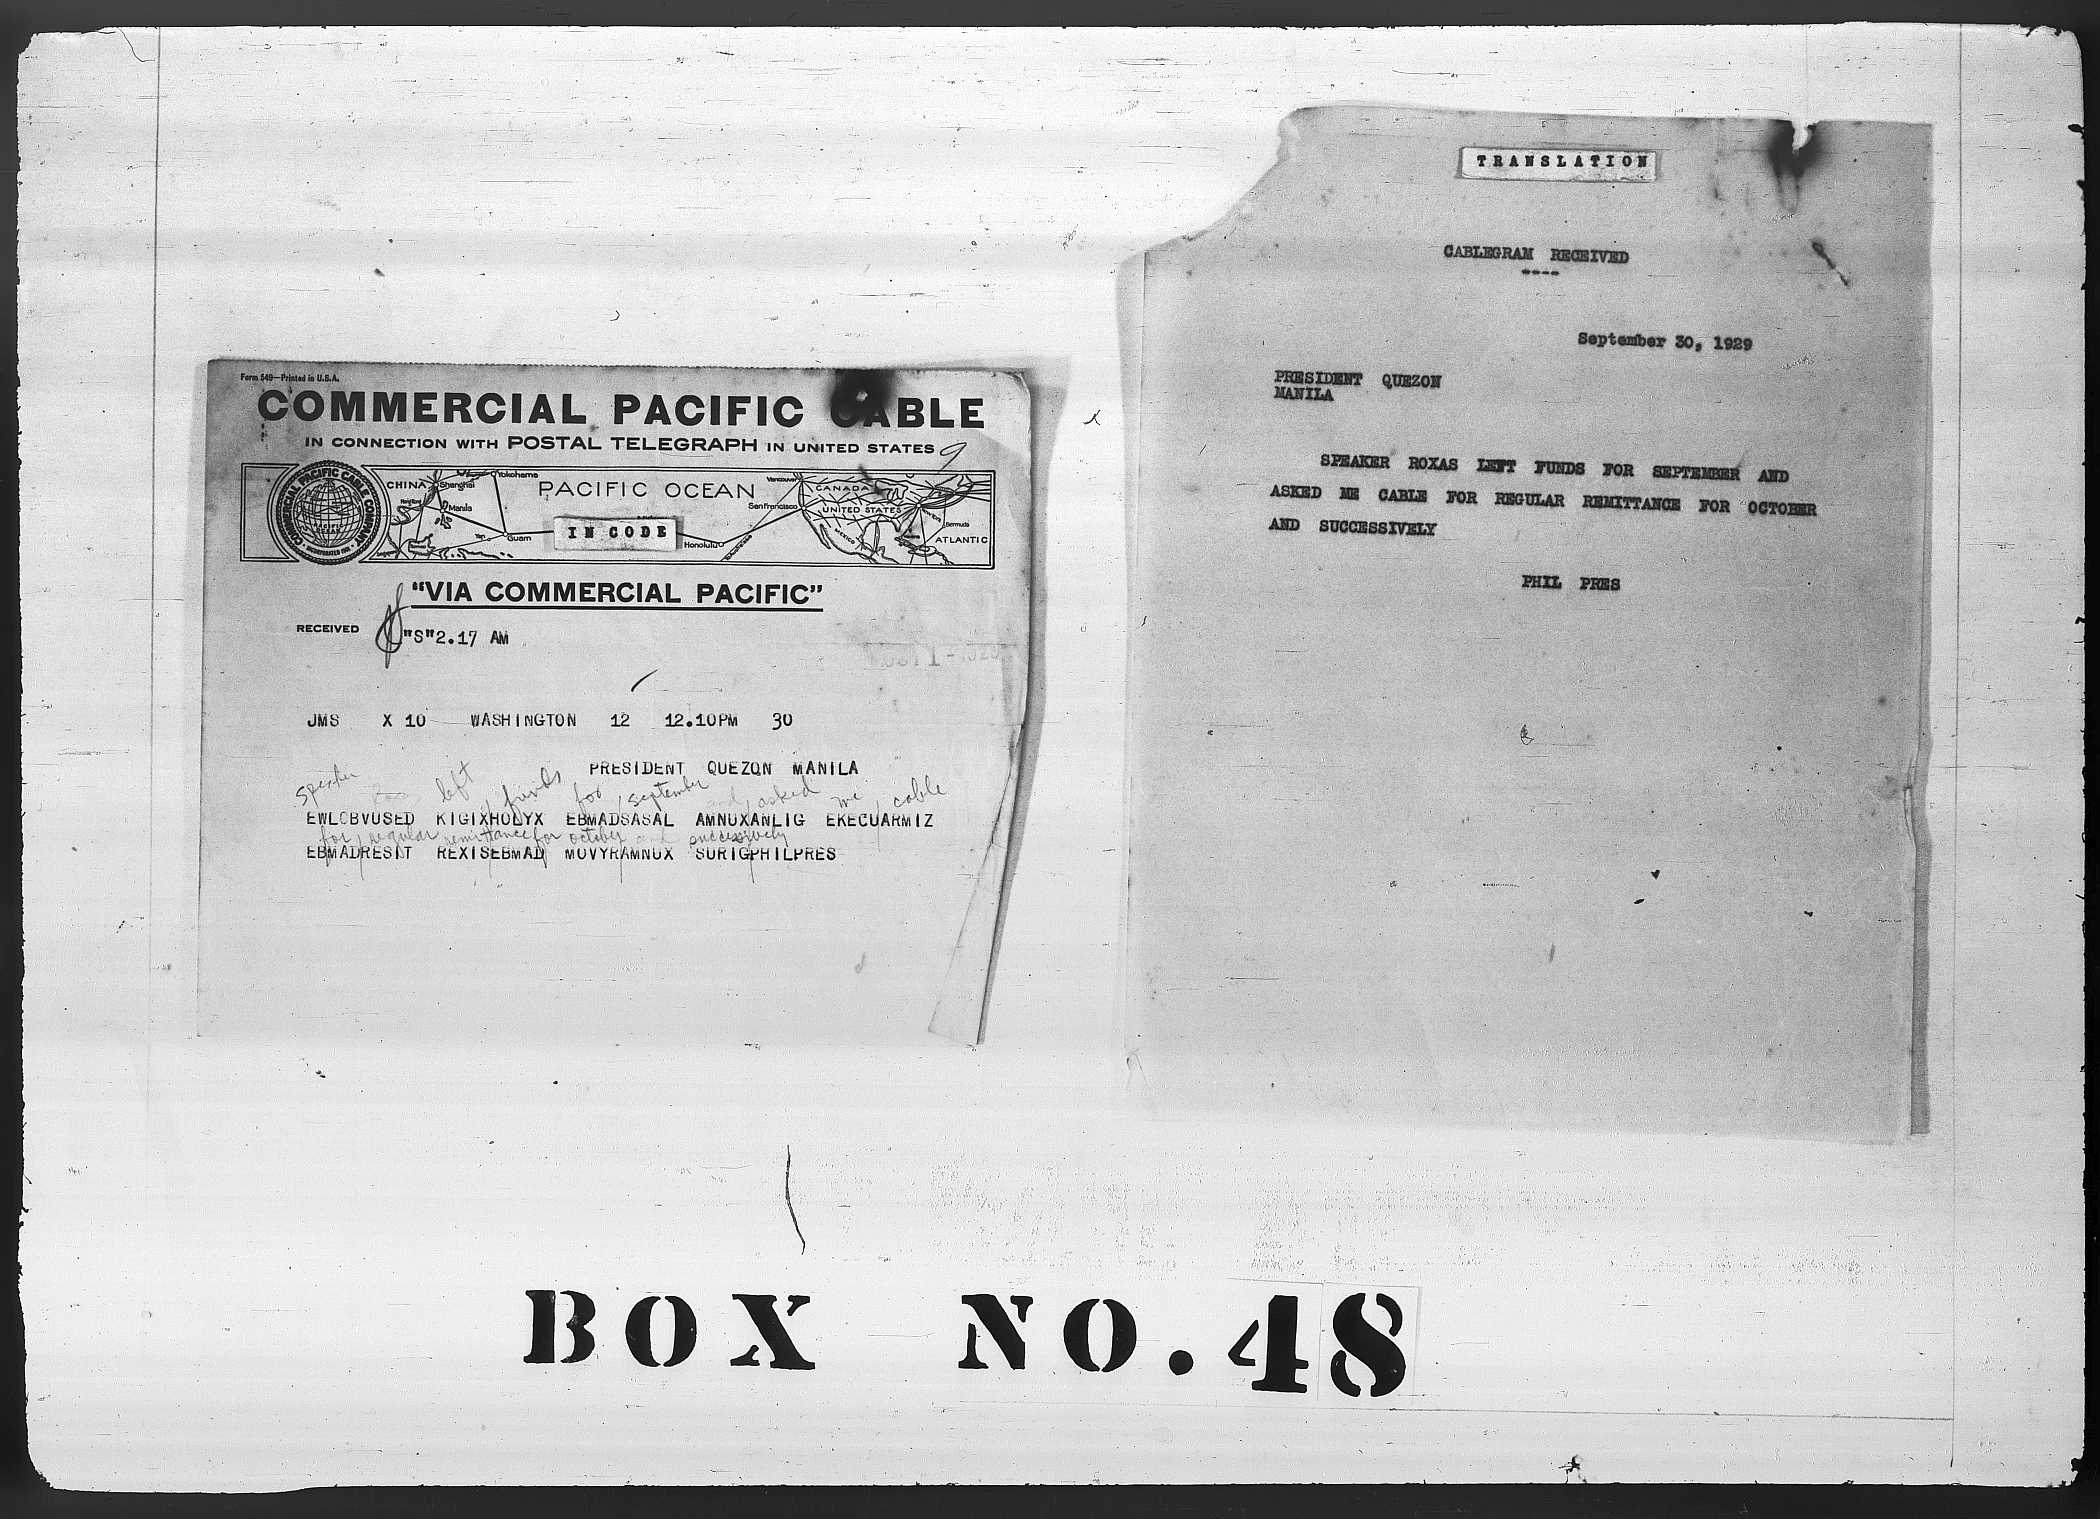 Form 549—Printed in U.S.A.
COMMERCIAL PACIFIC CABLE
IN CONNECTION WITH POSTAL TELEGRAPH IN UNITED STATES
9
COMMERCIAL PACIFIC CABLE COMPANY
INCORPORATED 1901
CHINA
Shanghai
Yokohama
Hong Kong
Manila
Guam
PACIFIC OCEAN
IN CODE
Honolulu
Vancouver
San Francisco
CANADA
UNITED STATES
MEXICO
Bermuda
ATLANTIC
"VIA COMMERCIAL PACIFIC"
RECEIVED "S"2.17 AM
JMS X 10 WASHINGTON 12 12.10PM 30
PRESIDENT QUEZON MANILA
speaker left funds for september and asked me cable
EWLCBVUSED KIGIXHOLYX EBMADSASAL AMNUXANLIG EKECUARMIZ
for regular remittance for october and successively
EBMADRESIT REXISEBMAD MOVYRAMNUX SURIGPHILPRES
TRANSLATION
CABLEGRAM RECEIVED
----
September 30, 1929
PRESIDENT QUEZON
MANILA
SPEAKER ROXAS LEFT FUNDS FOR SEPTEMBER AND
ASKED ME CABLE FOR REGULAR REMITTANCE FOR OCTOBER
AND SUCCESSIVELY
PHIL PRES
BOX NO. 48